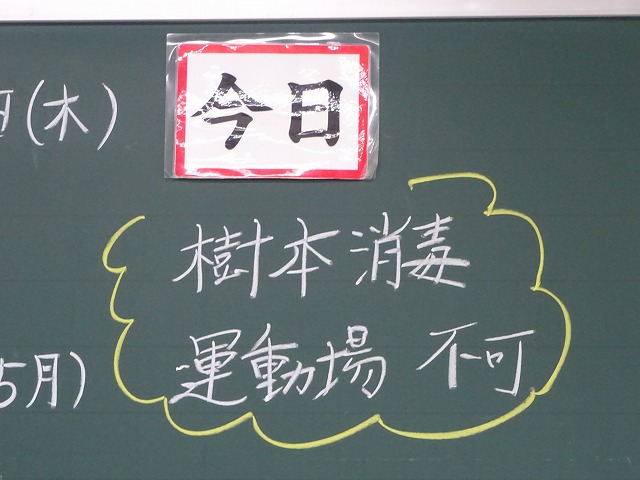 (木)
今日
樹本消毒
運動場 不可
5月)